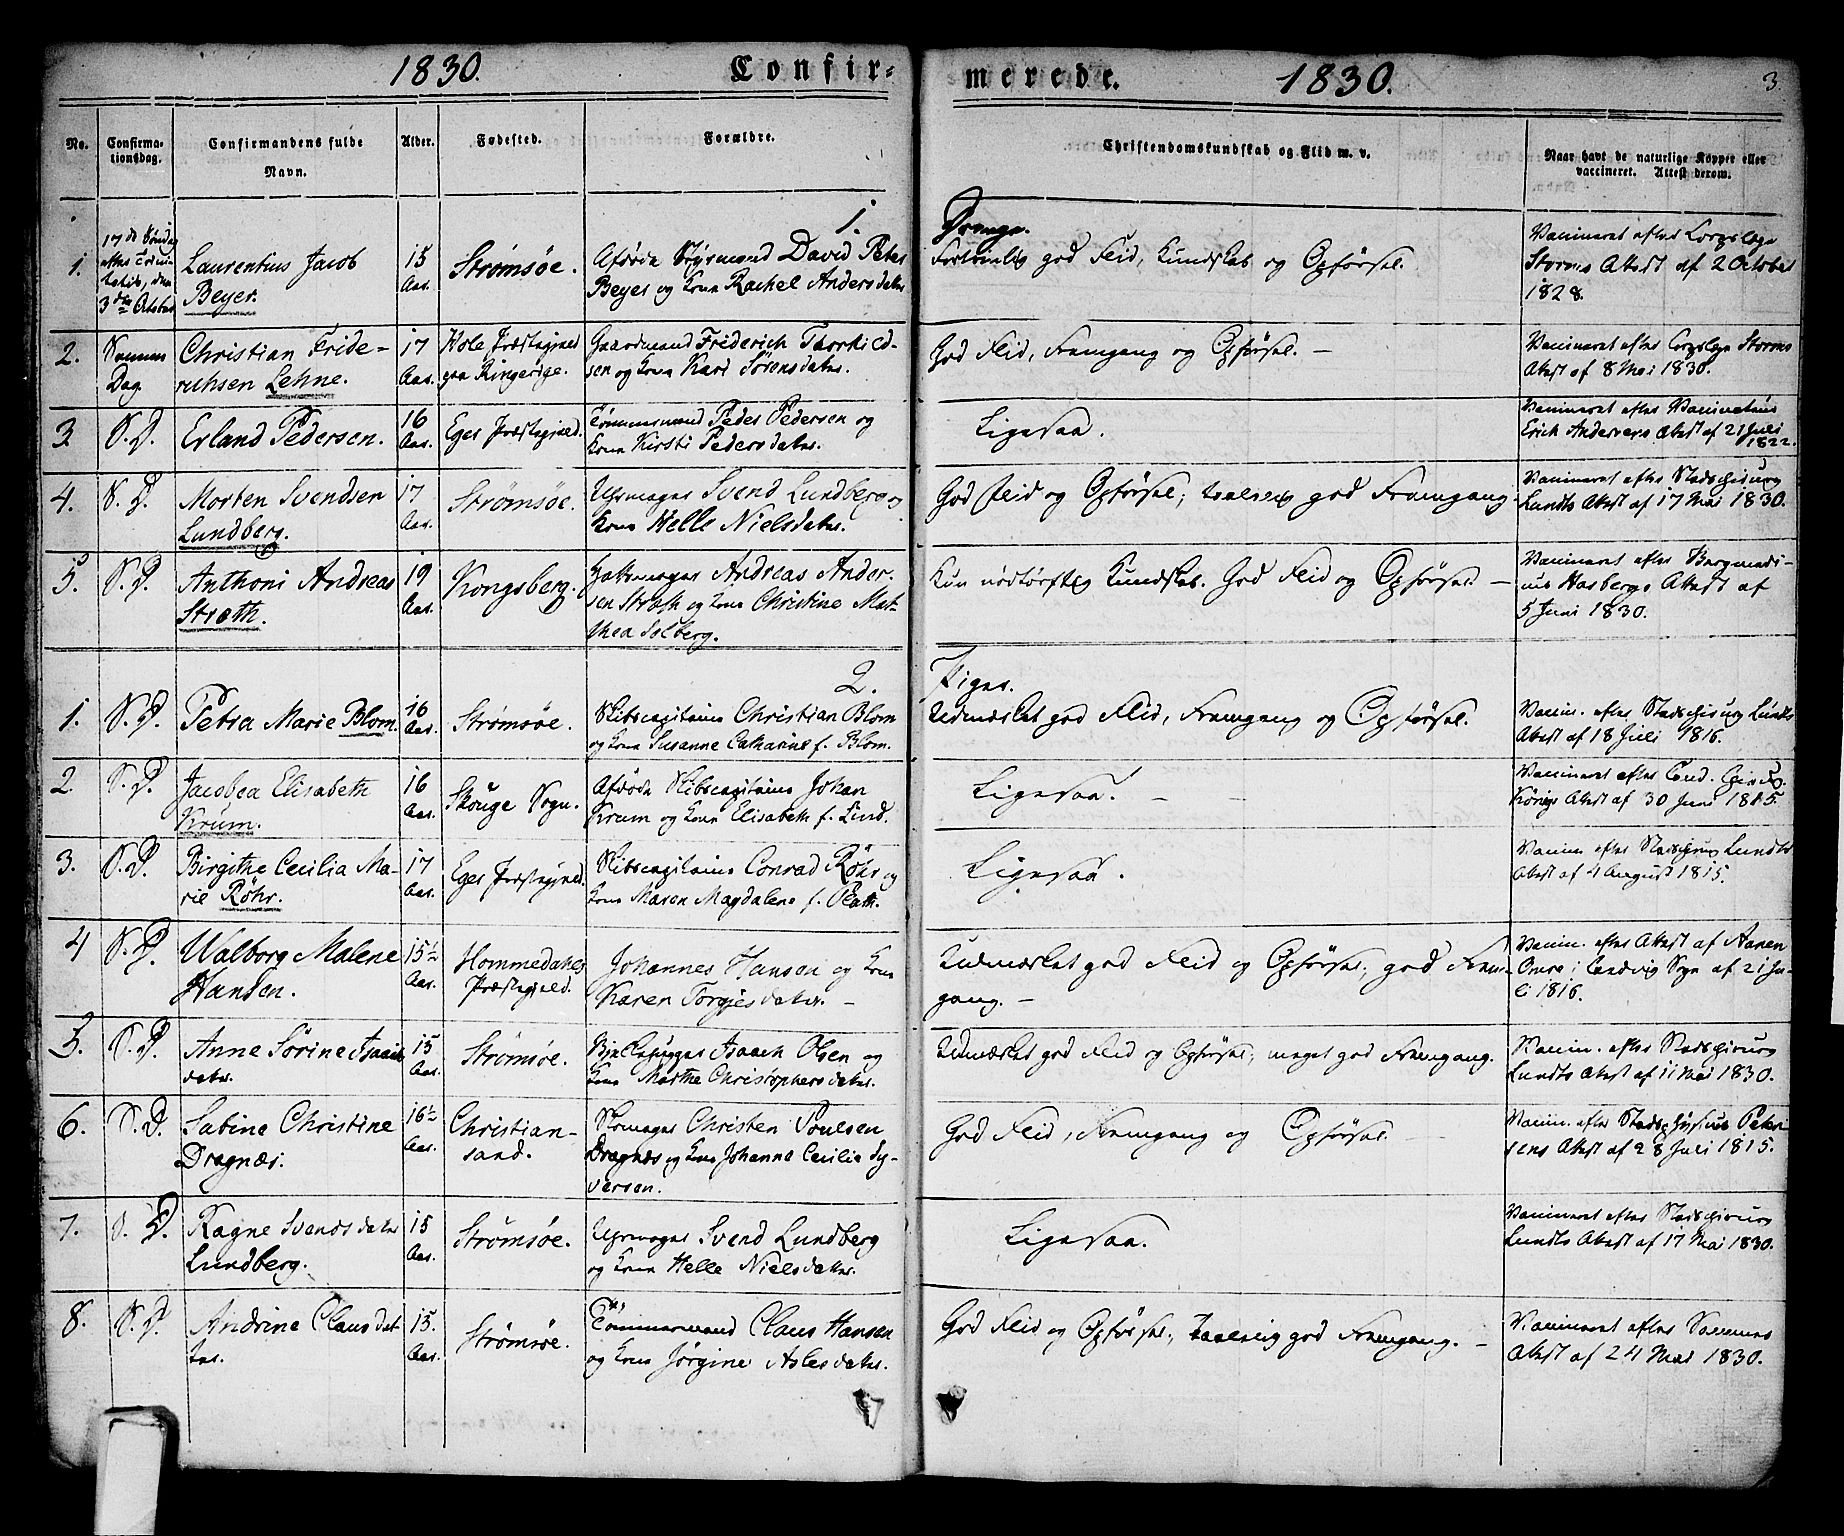 1830. Confir-
merede. 1830. 3.
No. Confirma-tionsdag. Confirmandens fulde Navn. Alder. Fødested. Forældre.
Christendomskundskab og Flid m. v. Naar havt de naturlige Kopper eller vaccineret. Attest derom.
1. Drenge.
1. 17de Søndag efter Trini-tatis, den 3die Octobr Laurentius Jacob Beyer. 15 Aar. Strømsøe. Afdøde Styrmand David Peter Beyer og Kone Rachel Andersdatter
Fortrinlig god Flid, Kundskab og Opførsel. Vaccineret efter Corpslæge Storms Attest af 2 October 1828.
2. Samme Dag Christian Fride-richsen Lehne. 17 Aar. Hole Præstegjeld paa Ringerige. Gaardmand Friderich Thorkild-sen og Kone Kari Sørensdatter.
God Flid, Fremgang og Opførsel. — Vaccineret efter Corpslæge Storms Attest af 8 Mai 1830.
3 S. D. Erland Pedersen. 16 Aar. Eger Præstegjeld. Tømmermand Peder Pedersen og Kone Kirsti Pedersdatter.
Ligesaa. Vaccineret efter Vaccinateur Erich Andersens Attest af 21 Juli 1822.
4. S. D. Morten Svendsen Lundberg. 17 Aar. Strømsøe. Uhrmager Svend Lundberg og Kone Helle Nielsdatter.
God Flid og Opførsel; taalelig god Fremgang. Vaccineret efter Stadschirurg Lundts Attest af 17 Mai 1830.
5. S. D. Anthoni Andreas Stræth. 19 Aar. Kongsberg. Andreas Ander-sen Stræth og Kone Christine Mat-thea Solberg.
Kun nødtørftig Kundskab. God Flid og Opførsel — Vaccineret efter Attest af 5 Juni 1830.
2. Piger.
1. S. D. Petra Marie Blom. 16 Aar. Strømsøe. Skibscapitain Christian Blom og Kone Susanne Catharine f. Blom.
Udmærket god Flid, Fremgang og Opførsel. Vaccin. efter Stadschirurg Lundts Attest af 18 Juli 1816.
2. S. D. Jacobea Elisabeth Krum. 16 Aar. Skouge Sogn. Afdøde Skibscapitain Johan Krum og Kone Elisabeth f. Lind.
Ligesaa. — Vaccineret efter Cand. Chirurg. Königs Attest af 30 Juni 1815.
3. S. D. Birgithe Cecilia Ma-rie Röhr. 17 Aar. Eger Præstegjeld. Skibscapitain Conrad Röhr og Kone Maren Magdalene f. Plath.
Ligesaa. Vaccin. efter Stadschirurg Lundts Attest af 4 August 1815.
4 S. D. Walborg Malene Hansen. 15½ Aar. Hommedahls Præstegjeld. Johannes Hansen og Kone Karen Torgjesdatter. —
Udmærket god Flid og Opførsel; god Frem-gang. — Vaccin. efter Attest af Aanen Omre i Landvig Sogn af 21 Ju-li 1816.
5. S. D. Anne Sørine Isaachs datter. 15 Aar. Strømsøe. Isaach Olsen og Kone Marthe Christophersdatter.
Udmærket god Flid og Opførsel; meget god Fremgang. Vaccin. efter Stadschirurg Lundts Attest af 11 Mai 1830.
6. S. D. Sabine Christine Dragnæs. 16½ Aar. Christian-sand. Skomager Christen Poulsen Dragnæs og Kone Johanne Cecilia Sy-versen.
God Flid, Fremgang og Opførsel. — Vaccin. efter Stadsphysicus Peter-sens Attest af 28 Juli 1815.
7. S. D. Ragne Svendsdatter Lundberg. 15 Aar. Strømsøe. Uhrmager Svend Lundberg og Kone Helle Nielsdatter.
Ligesaa. Vaccineret efter Stadschirurg Lundts Attest af 17 Mai 1830.
8. S. D. Andrine Clausdat-ter. 15. Aar. Strømsøe. Tømmermand Claus Hansen og Kone Jørgine Aslesdatter.
God Flid og Opførsel; taalelig god Fremgang. — Vaccineret efter Sammes Attest af 24 Mai 1830.